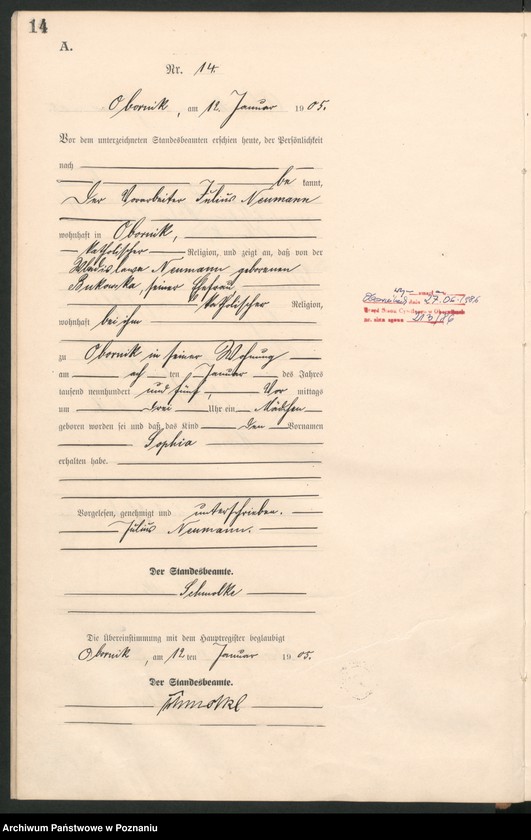 14
A.
Nr. 14.
Obornik, am 12. Januar 1905.
Vor dem unterzeichneten Standesbeamten erschien heute, der Persönlichkeit
nach
be kannt,
Der Vorarbeiter Julius Neumann
wohnhaft in Obornik,
katholischer Religion, und zeigt an, daß von der
Wladislawa Neumann geborenen
Bukowska, seiner Ehefrau,
katholischer Religion,
wohnhaft bei ihm
zu Obornik in seiner Wohnung
am acht ten Januar des Jahres
tausend neunhundert und fünf, Vor mittags
um drei Uhr ein Mädchen
geboren worden sei und daß das Kind den Vornamen
Sophia
erhalten habe.
Vorgelesen, genehmigt und unterschrieben.
Julius Neumann.
Der Standesbeamte.
Schmolke
Die Übereinstimmung mit dem Hauptregister beglaubigt
Obornik, am 12ten Januar 1905.
Der Standesbeamte.
Schmolke
dnia 27.06.1986
213/86
Archiwum Państwowe w Poznaniu